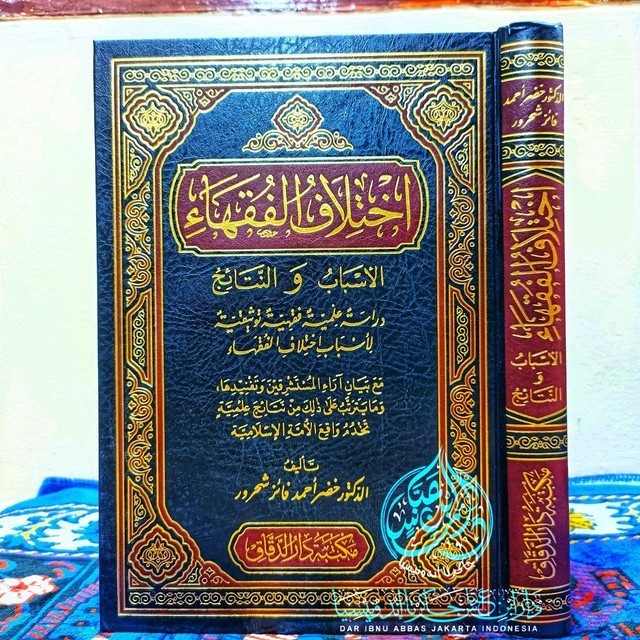 اختلاف الفقهاء
الأسباب و النتائج
دراسة علمية فقهية توثيقية
لأسباب اختلاف الفقهاء
مع بيان آراء المستشرقين وتفنيدها،
وما يترتب على ذلك من نتائج علمية
تخدم واقع الأمة الإسلامية
تأليف
الدكتور خضر أحمد فائز شحرور
مكتبة دار الدقاق
الدكتور خضر أحمد
فائز شحرور
اختلاف الفقهاء
الأسباب
و
النتائج
مكتبة دار الدقاق
DAR IBNU ABBAS JAKARTA INDONESIA